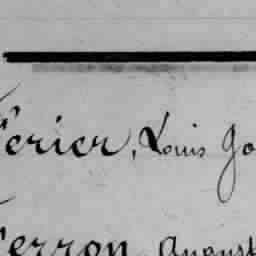 Ferier, Louis Jo
Ferron August